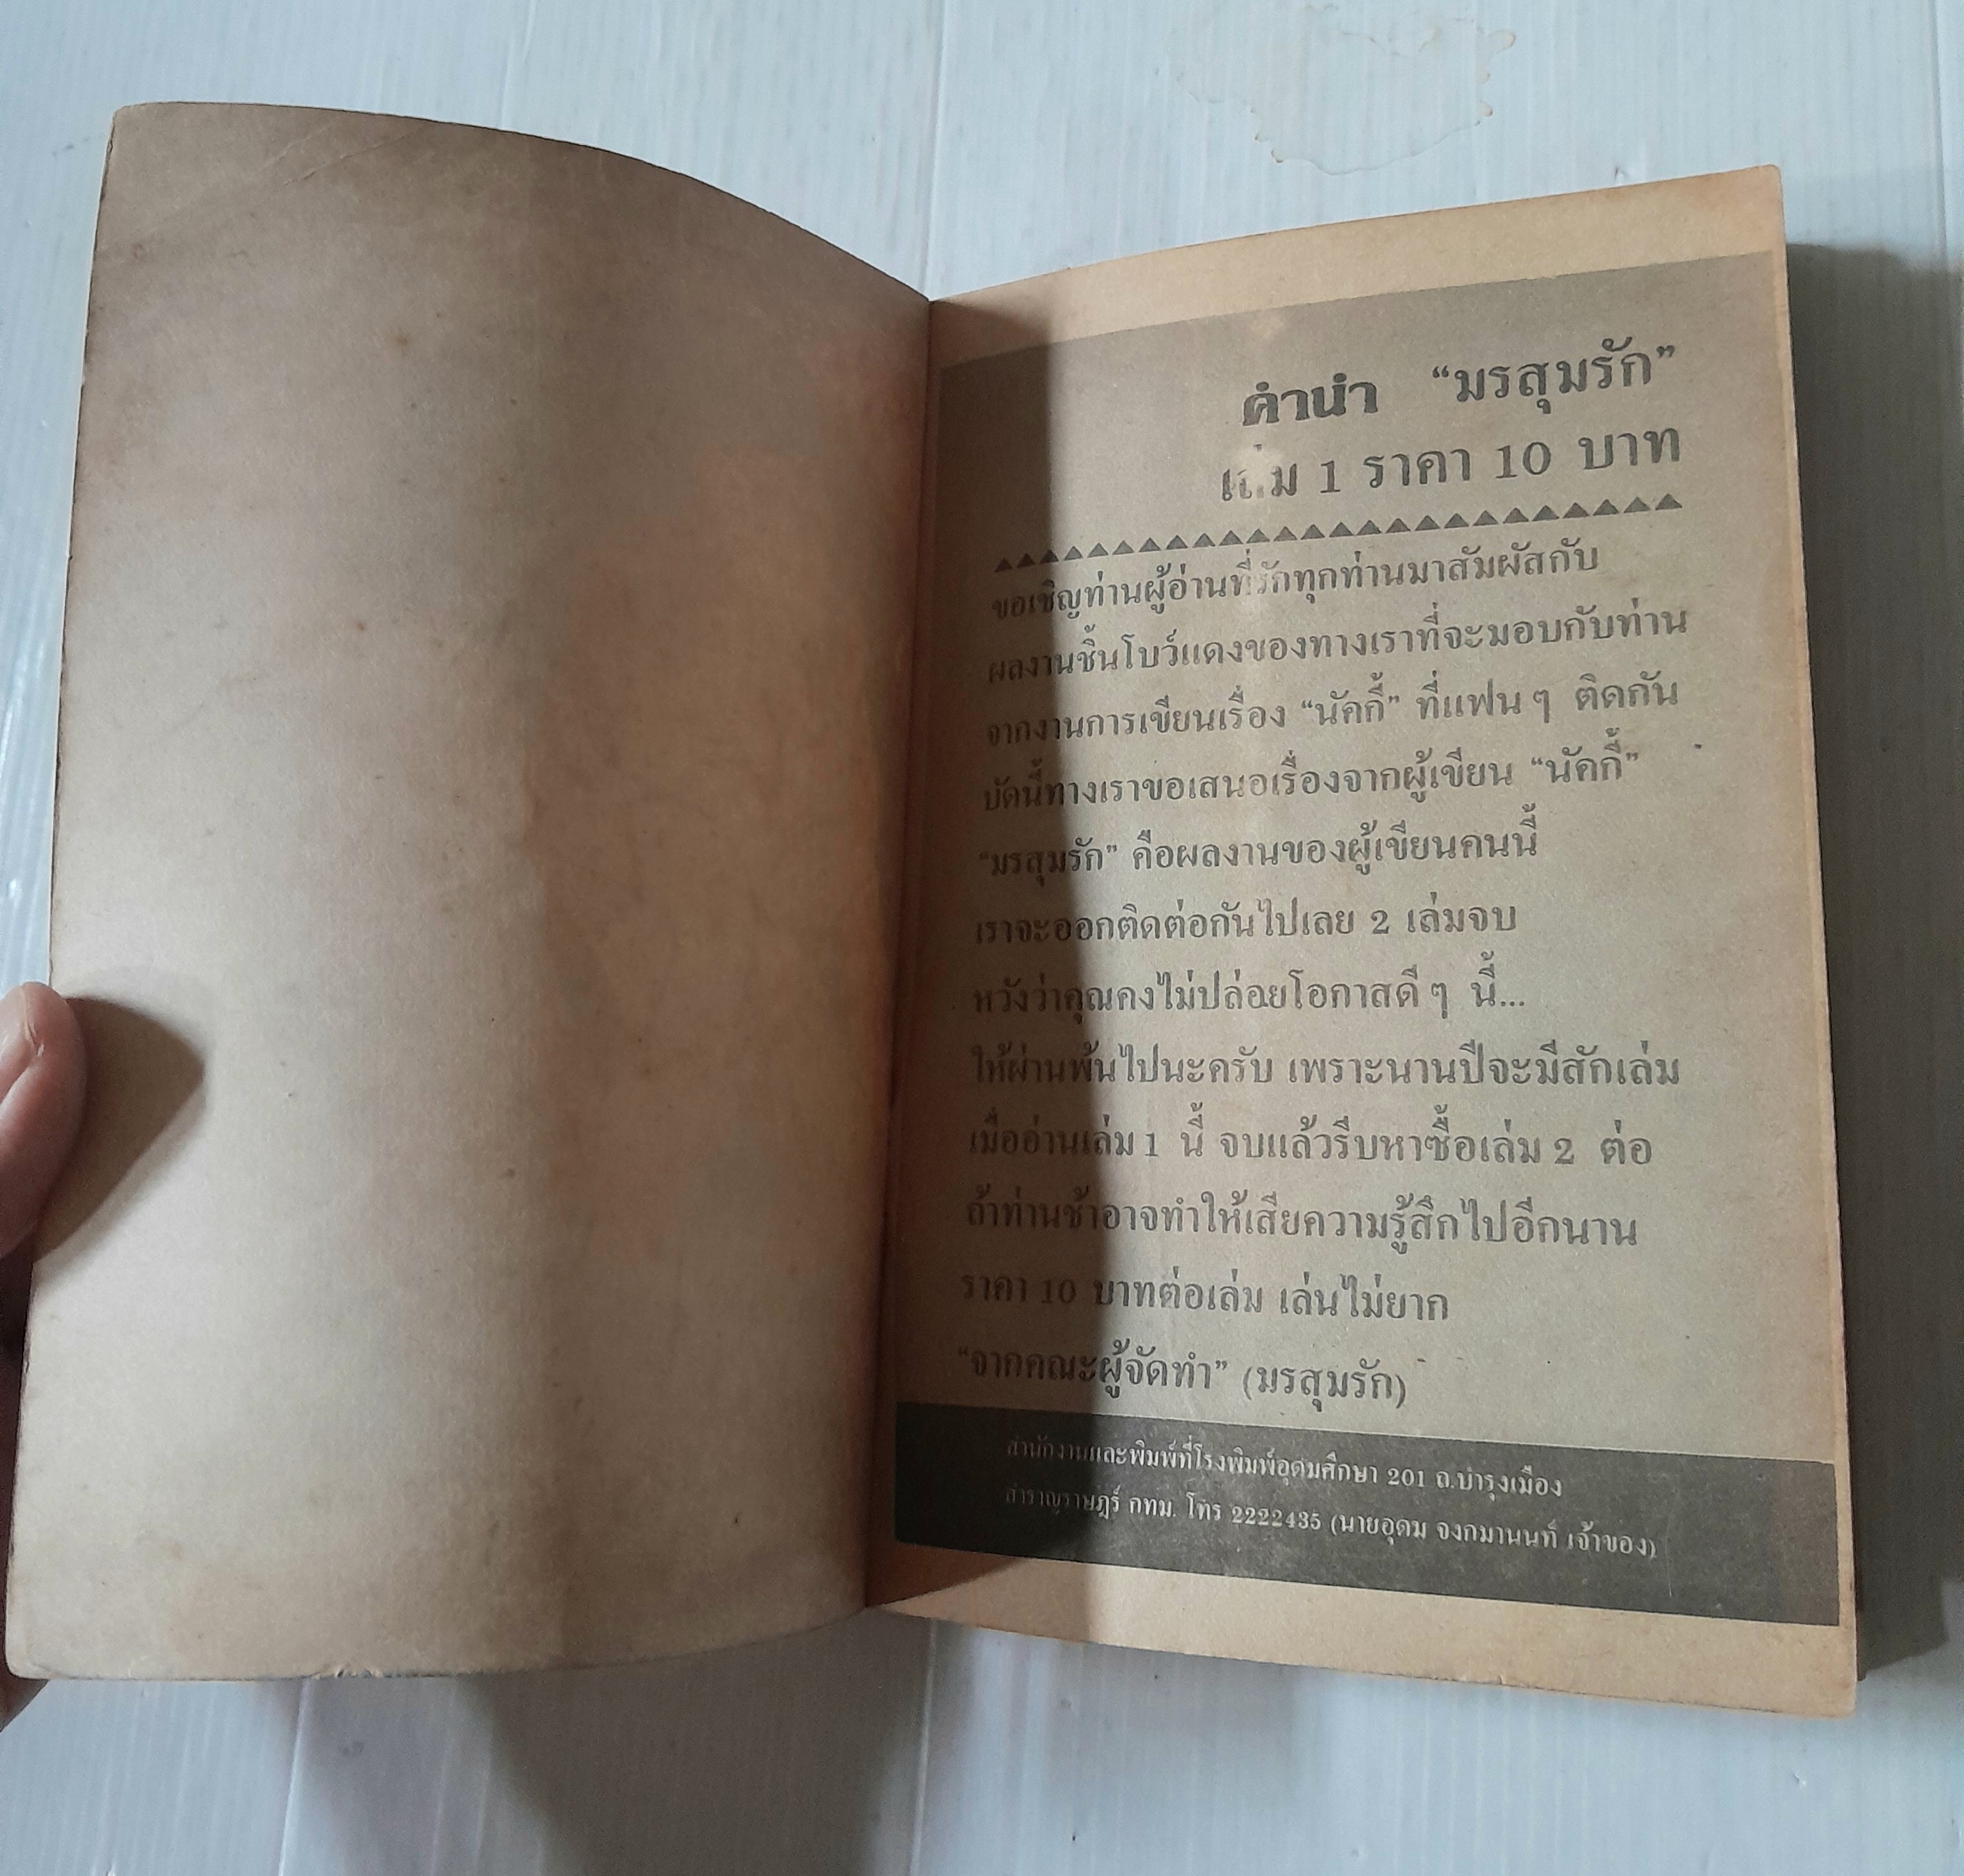 คำนำ “มรสุมรัก”
เล่ม 1 ราคา 10 บาท
ขอเชิญท่านผู้อ่านที่รักทุกท่านมาสัมผัสกับ
ผลงานชิ้นโบว์แดงของทางเราที่จะมอบกับท่าน
จากงานการเขียนเรื่อง “นัคกี้” ที่แฟน ๆ ติดกัน
บัดนี้ทางเราขอเสนอเรื่องจากผู้เขียน “นัคกี้”
“มรสุมรัก” คือผลงานของผู้เขียนคนนี้
เราจะออกติดต่อกันไปเลย 2 เล่มจบ
หวังว่าคุณคงไม่ปล่อยโอกาสดี ๆ นี้...
ให้ผ่านพ้นไปนะครับ เพราะนานปีจะมีสักเล่ม
เมื่ออ่านเล่ม 1 นี้ จบแล้วรีบหาซื้อเล่ม 2 ต่อ
ถ้าท่านช้าอาจทำให้เสียความรู้สึกไปอีกนาน
ราคา 10 บาทต่อเล่ม เล่นไม่ยาก
“จากคณะผู้จัดทำ” (มรสุมรัก)
สำนักงานและพิมพ์ที่โรงพิมพ์อุดมศึกษา 201 ถ.บำรุงเมือง
สำราญราษฎร์ กทม. โทร 2222435 (นายอุดม จงกมานนท์ เจ้าของ)